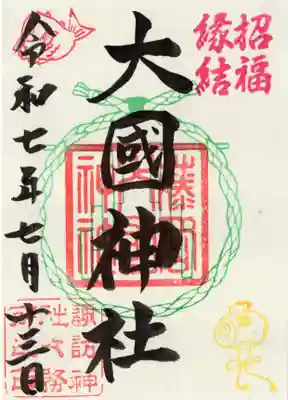 招福
縁結
大國神社
令和七年七月十三日